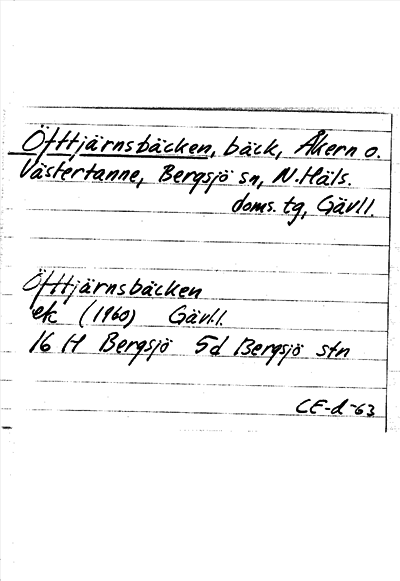 Öfttjärnsbäcken, bäck, Åkern o.
Västertanne, Bergsjö sn, N.Häls.
doms. tg, Gävl.l.
Öfttjärnsbäcken
ek (1960) Gävl.l.
16 H Bergsjö 5d Bergsjö stn
CE-d-63